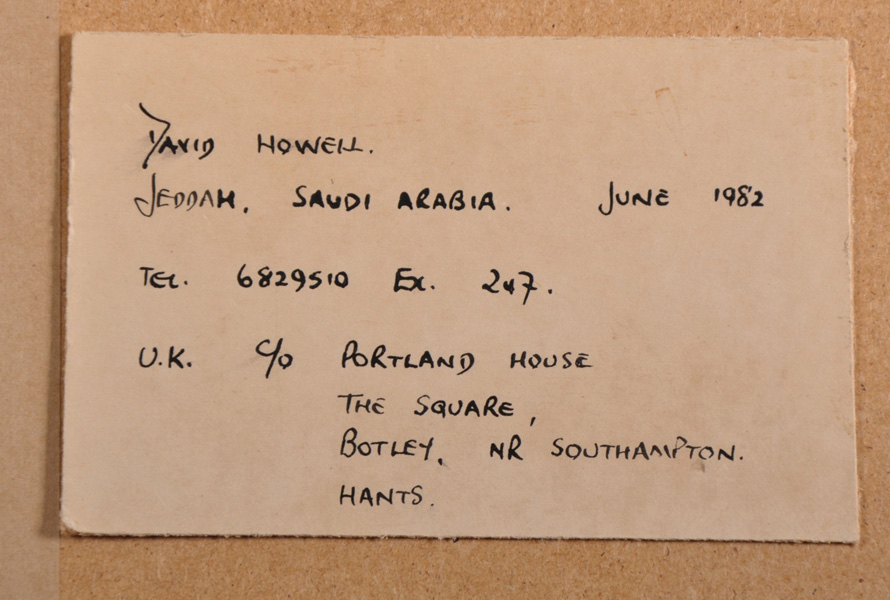 DAVID HOWELL.
JEDDAH, SAUDI ARABIA. JUNE 1982
TEL. 6829510 EX. 247.
U.K. C/O PORTLAND HOUSE
THE SQUARE,
BOTLEY, NR SOUTHAMPTON.
HANTS.